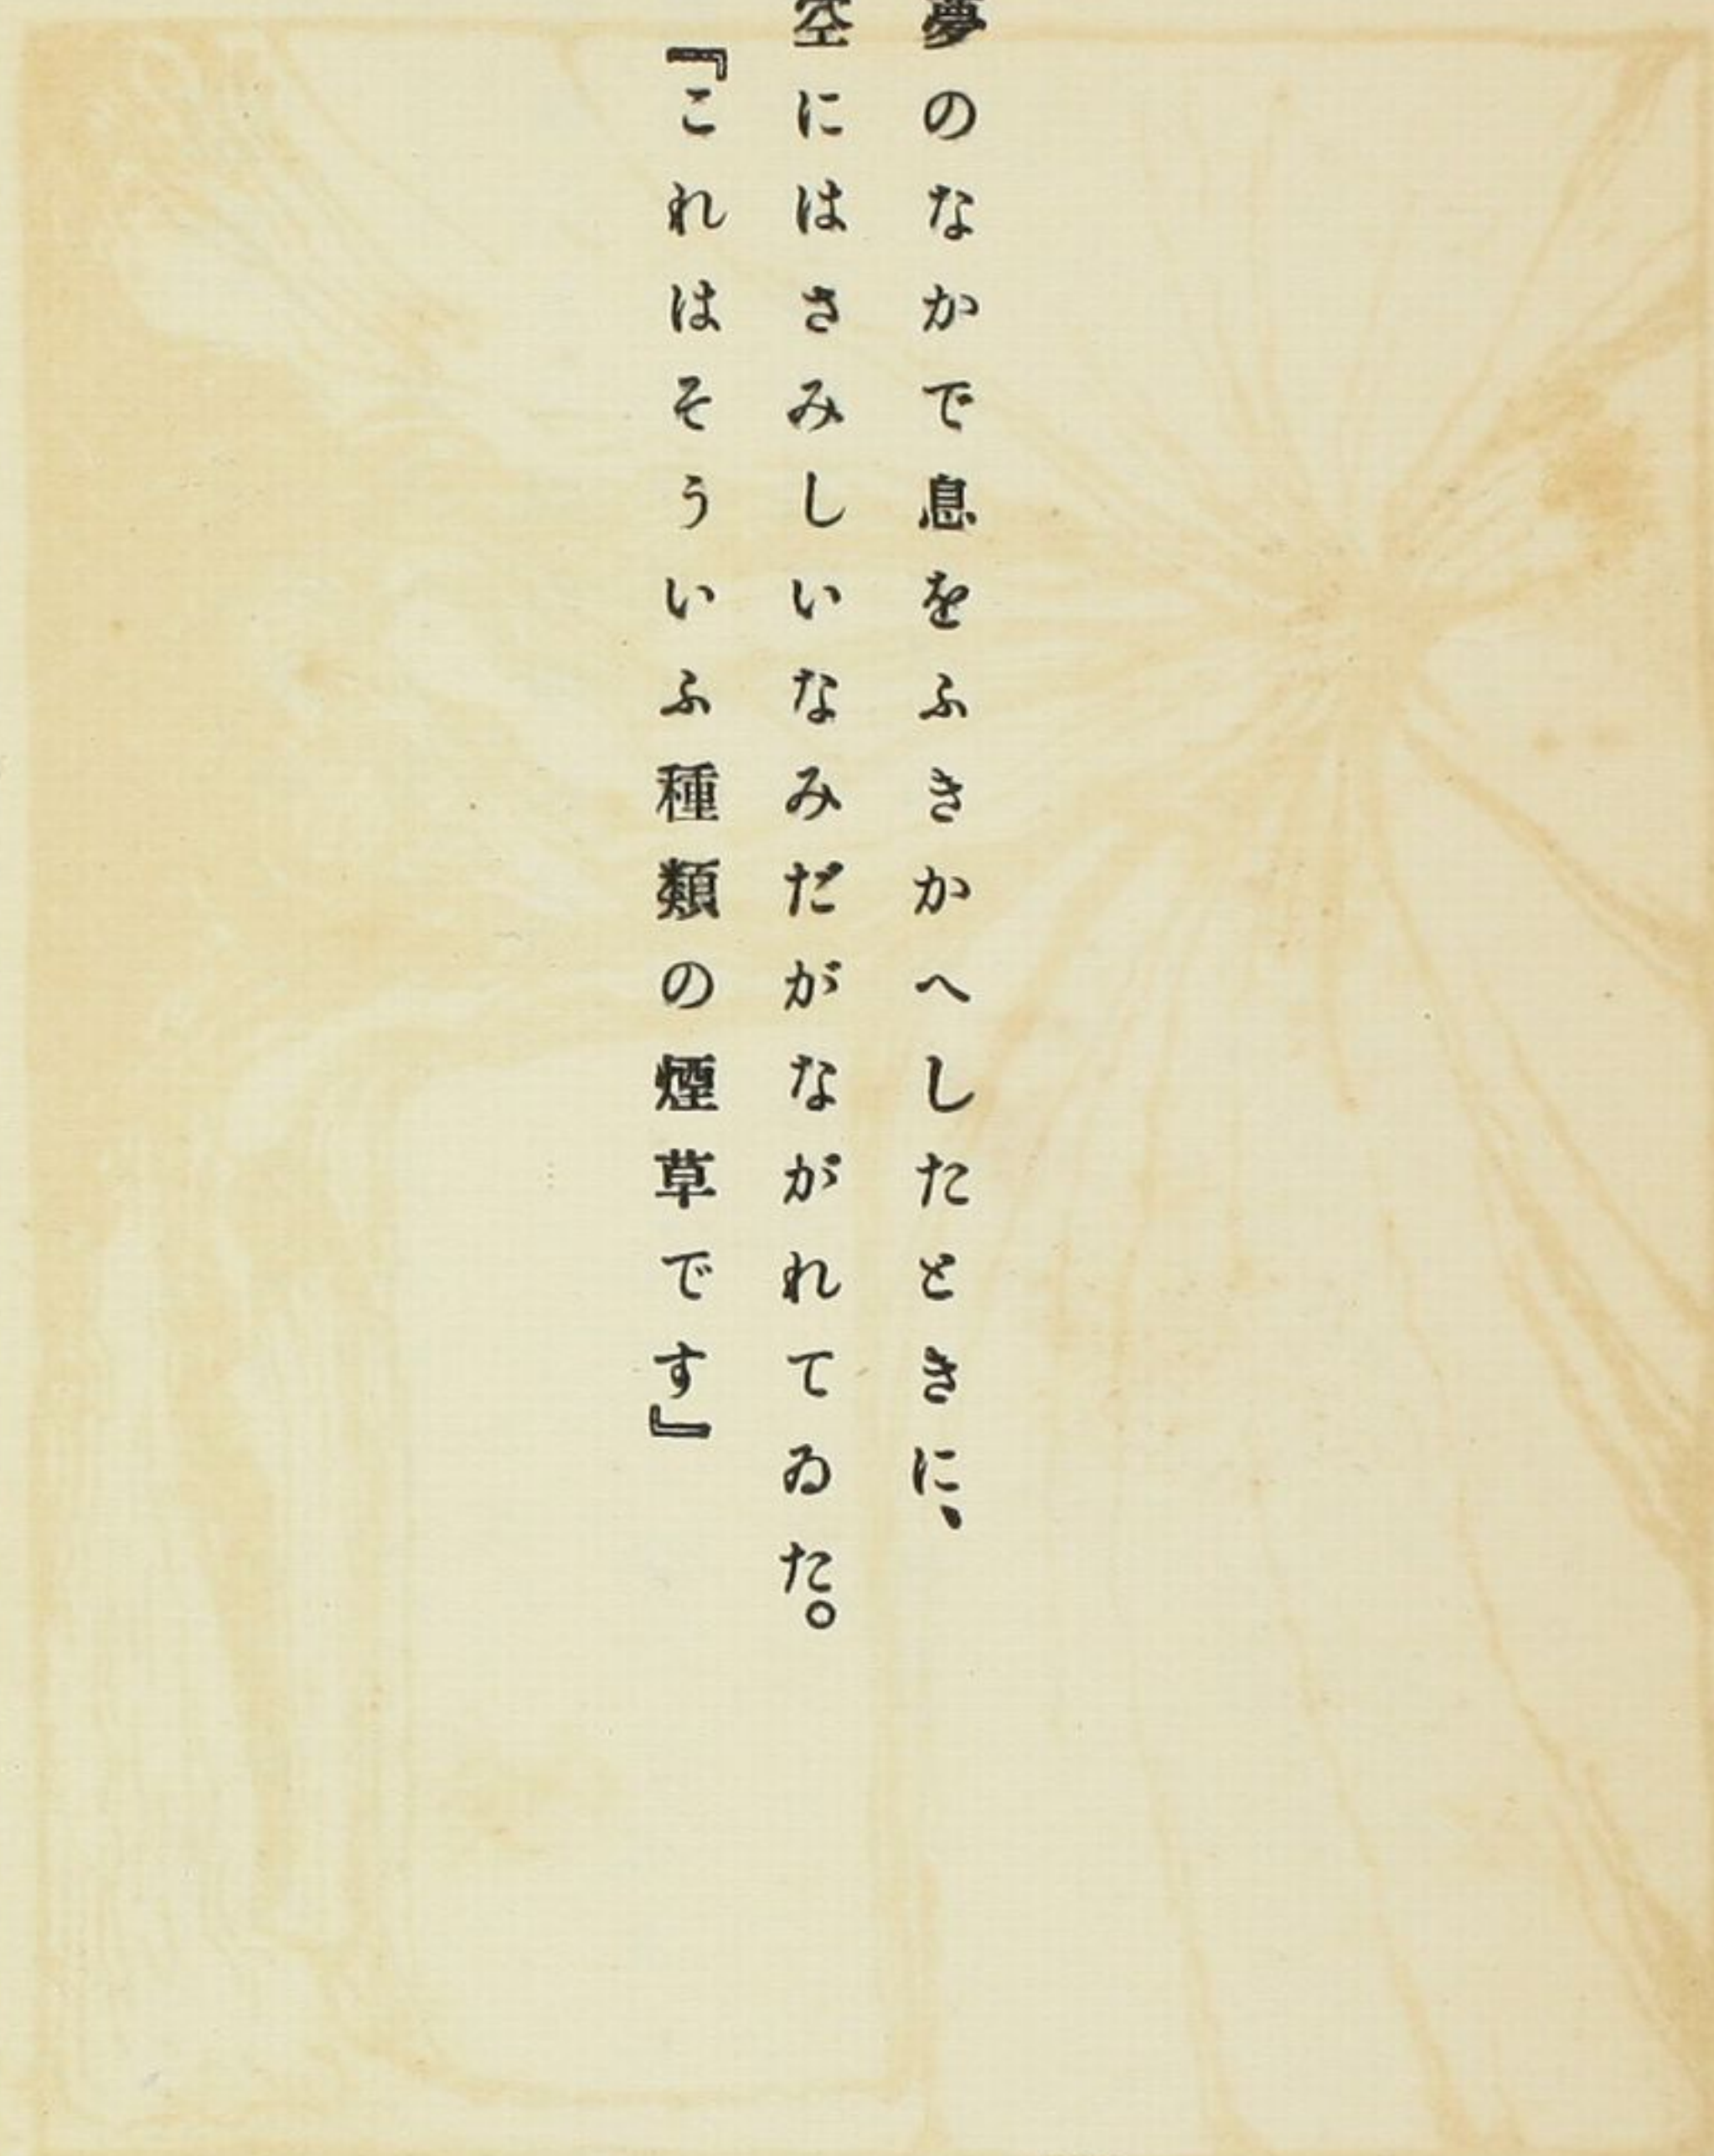 夢のなかで息をふきかへしたときに、
空にはさみしいなみだがながれてゐた。
『これはそういふ種類の煙草です』